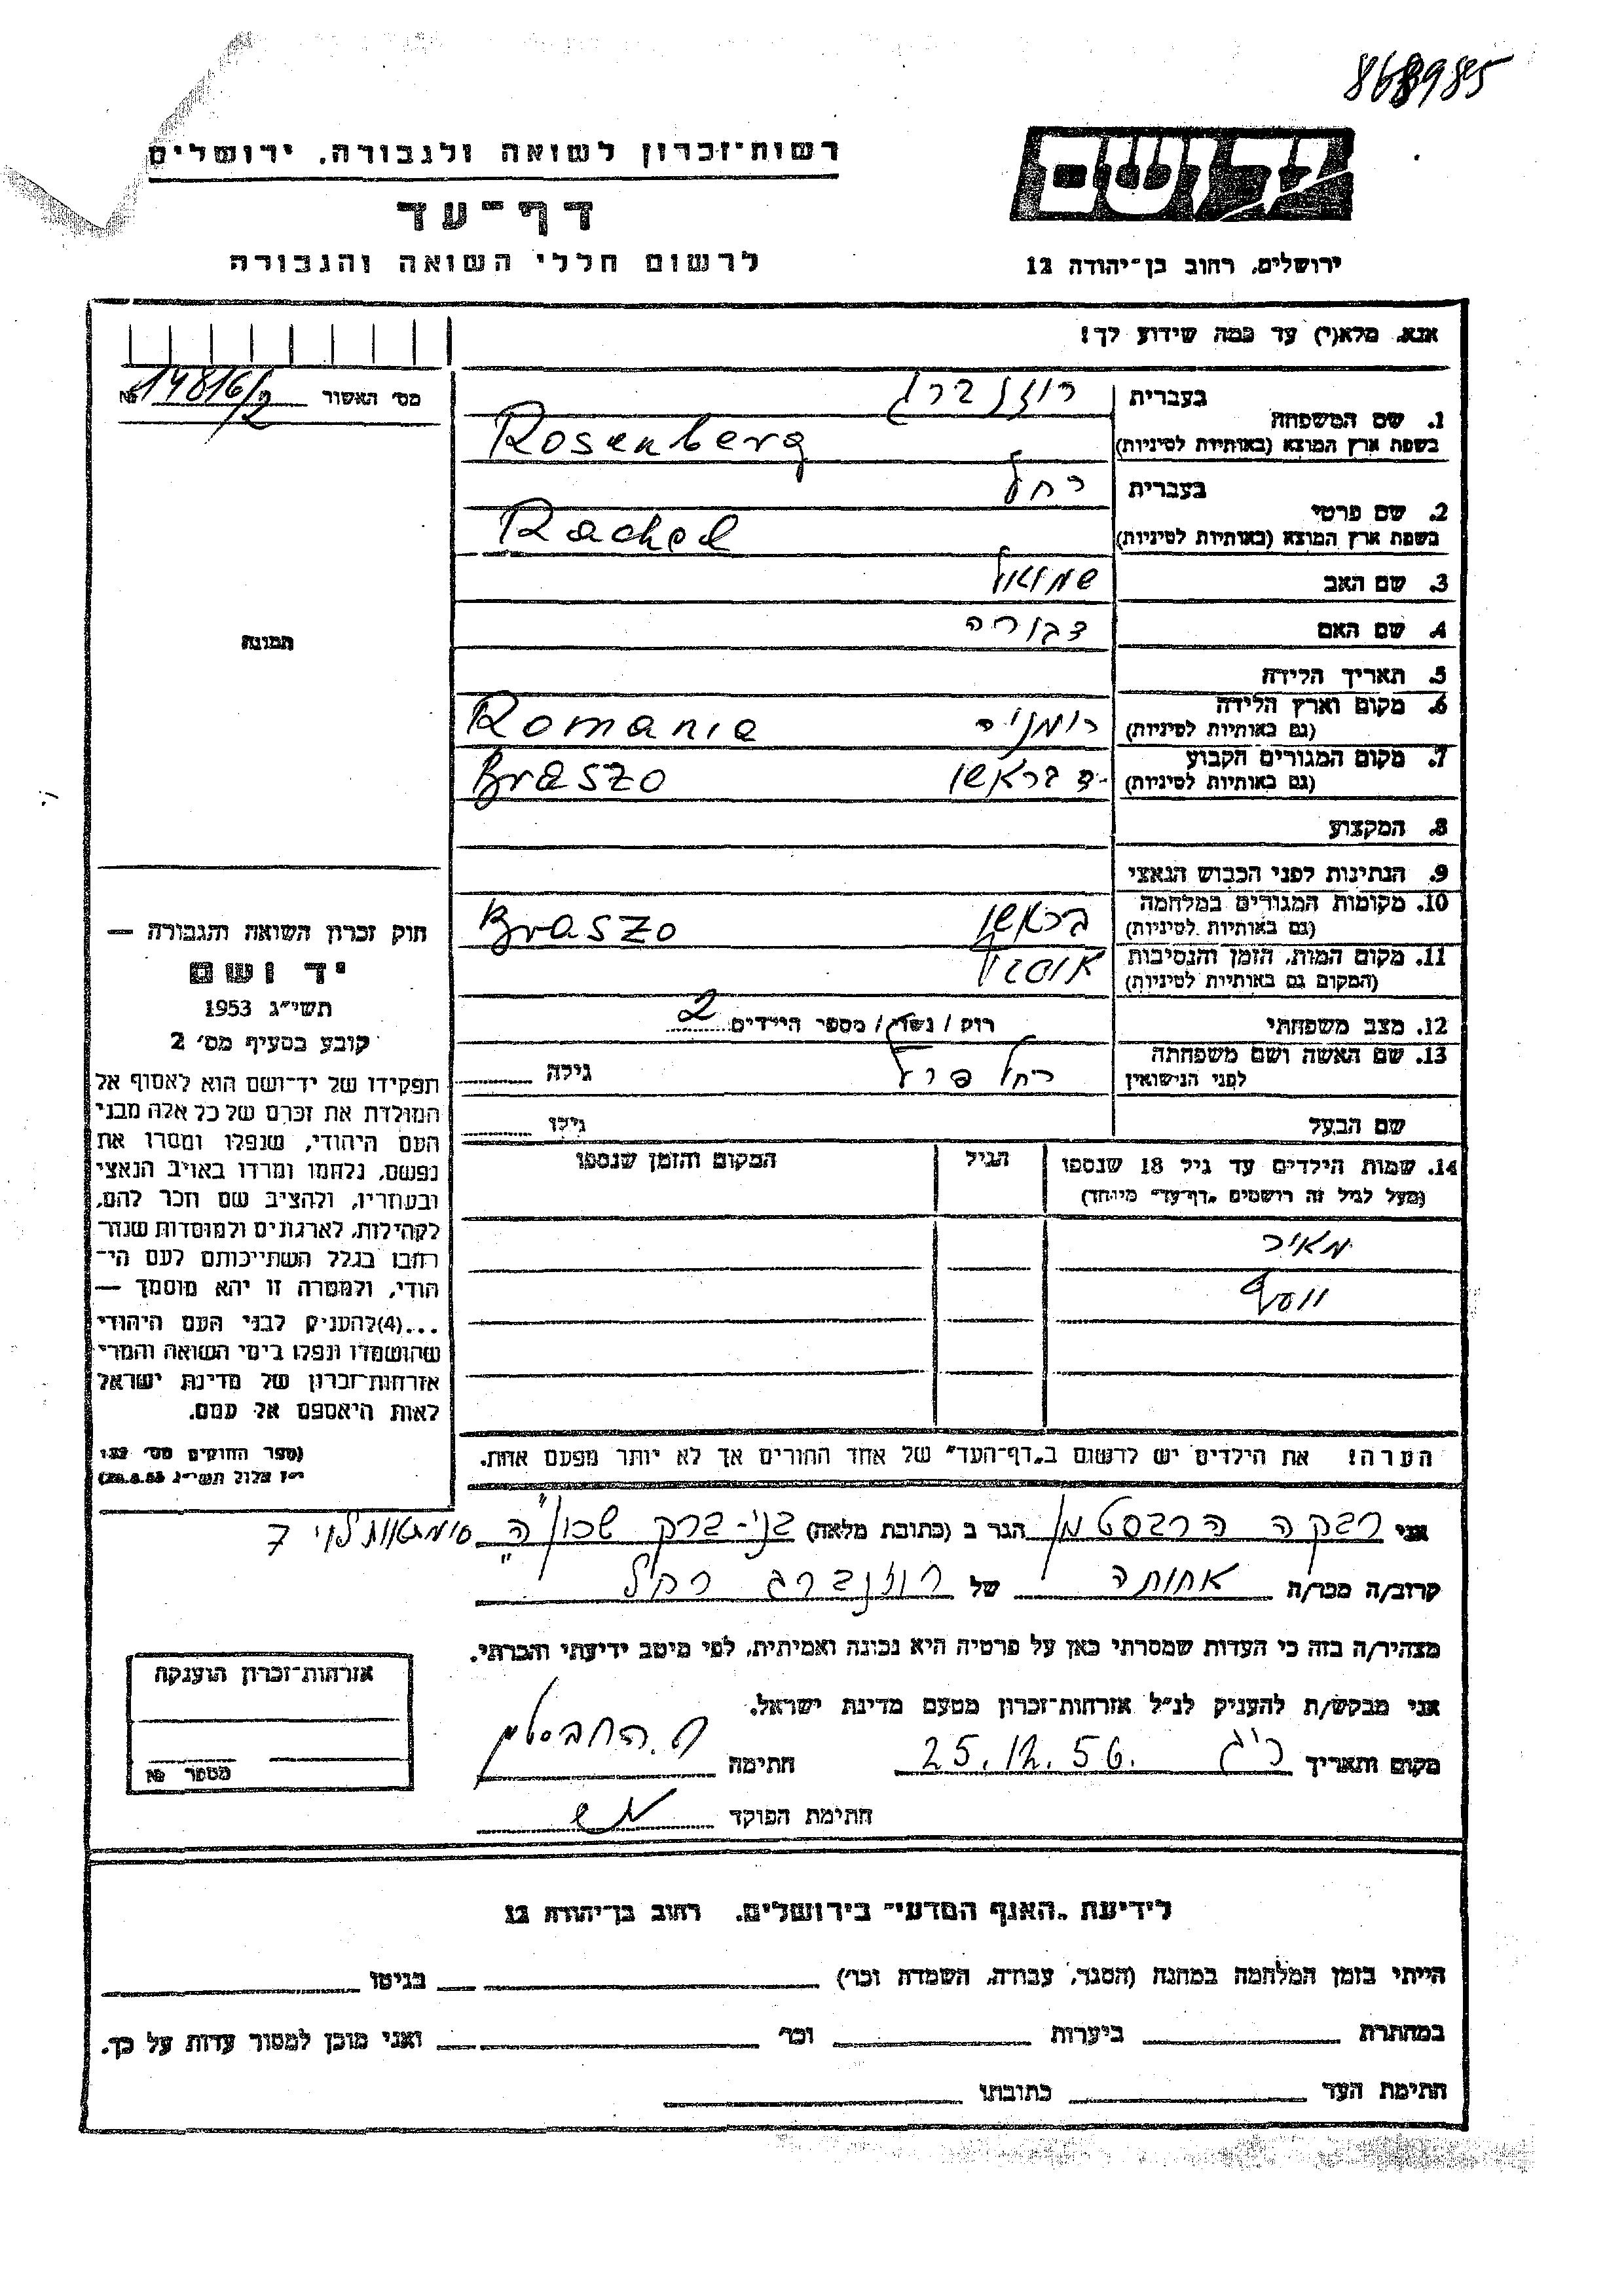 868985
רשות־זכרון לשואה ולגבורה, ירושלים
יד ושם
דף־עד
לרשום חללי השואה והגבורה
ירושלים, רחוב בן־יהודה 12
אנא, מלא(י) עד כמה שידוע לך!
מס׳ האשור 14816/2 №
1. שם המשפחה
בעברית רוזנברג
בשפת ארץ המוצא (באותיות לטיניות) Rosenberg
2. שם פרטי
בעברית רחל
בשפת ארץ המוצא (באותיות לטיניות) Rachel
3. שם האב שמואל
4. שם האם דבורה
5. תאריך הלידה
6. מקום וארץ הלידה
(גם באותיות לטיניות) רומניה Romania
7. מקום המגורים הקבוע
(גם באותיות לטיניות) בראשו Braszo
8. המקצוע
9. הנתינות לפני הכבוש הנאצי
10. מקומות המגורים במלחמה
(גם באותיות לטיניות) בראשו Braszo
11. מקום המות, הזמן והנסיבות
(המקום גם באותיות לטיניות)
12. מצב משפחתי רוק / נשוי / מספר הילדים 2
13. שם האשה ושם משפחתה
לפני הנישואין רחל פרל גילה
שם הבעל גילו
14. שמות הילדים עד גיל 18 שנספו הגיל המקום והזמן שנספו
(מעל לגיל זה רושמים „דף־עד״ מיוחד)
מאיר
יוסף
הערה! את הילדים יש לרשום ב„דף־העד״ של אחד ההורים אך לא יותר מפעם אחת.
תמונה
חוק זכרון השואה והגבורה —
יד ושם
תשי״ג 1953
קובע בסעיף מס׳ 2
תפקידו של יד־ושם הוא לאסוף אל
המולדת את זכרם של כל אלה מבני
העם היהודי, שנפלו ומסרו את
נפשם, נלחמו ומרדו באויב הנאצי
ובעוזריו, ולהציב שם וזכר להם,
לקהילות, לארגונים ולמוסדות שנח־
רבו בגלל השתייכותם לעם הי־
הודי, ולמטרה זו יהא מוסמך —
...(4)להעניק לבני העם היהודי
שהושמדו ונפלו בימי השואה והמרי
אזרחות־זכרון של מדינת ישראל
לאות היאספם אל עמם.
(ספר החוקים מס׳ 132
י״ז אלול תשי״ג 28.8.53)
אני רבקה הרבסטמן הגר ב (כתובת מלאה) בני-ברק שכון ה׳ לוי 7
קרוב/ה מכר/ה אחותה של רוזנברג רחל
מצהיר/ה בזה כי העדות שמסרתי כאן על פרטיה היא נכונה ואמיתית, לפי מיטב ידיעתי והכרתי.
אני מבקש/ת להעניק לנ״ל אזרחות־זכרון מטעם מדינת ישראל.
מקום ותאריך ר״ג 25.12.56. חתימה
חתימת הפוקד
אזרחות־זכרון הוענקה
מספר №
לידיעת „האגף המדעי״ בירושלים, רחוב בן־יהודה 12
הייתי בזמן המלחמה במחנה (הסגר, עבודה, השמדה וכו׳) בגיטו
במחתרת ביערות וכו׳ ואני מוכן למסור עדות על כך.
חתימת העד כתובתו